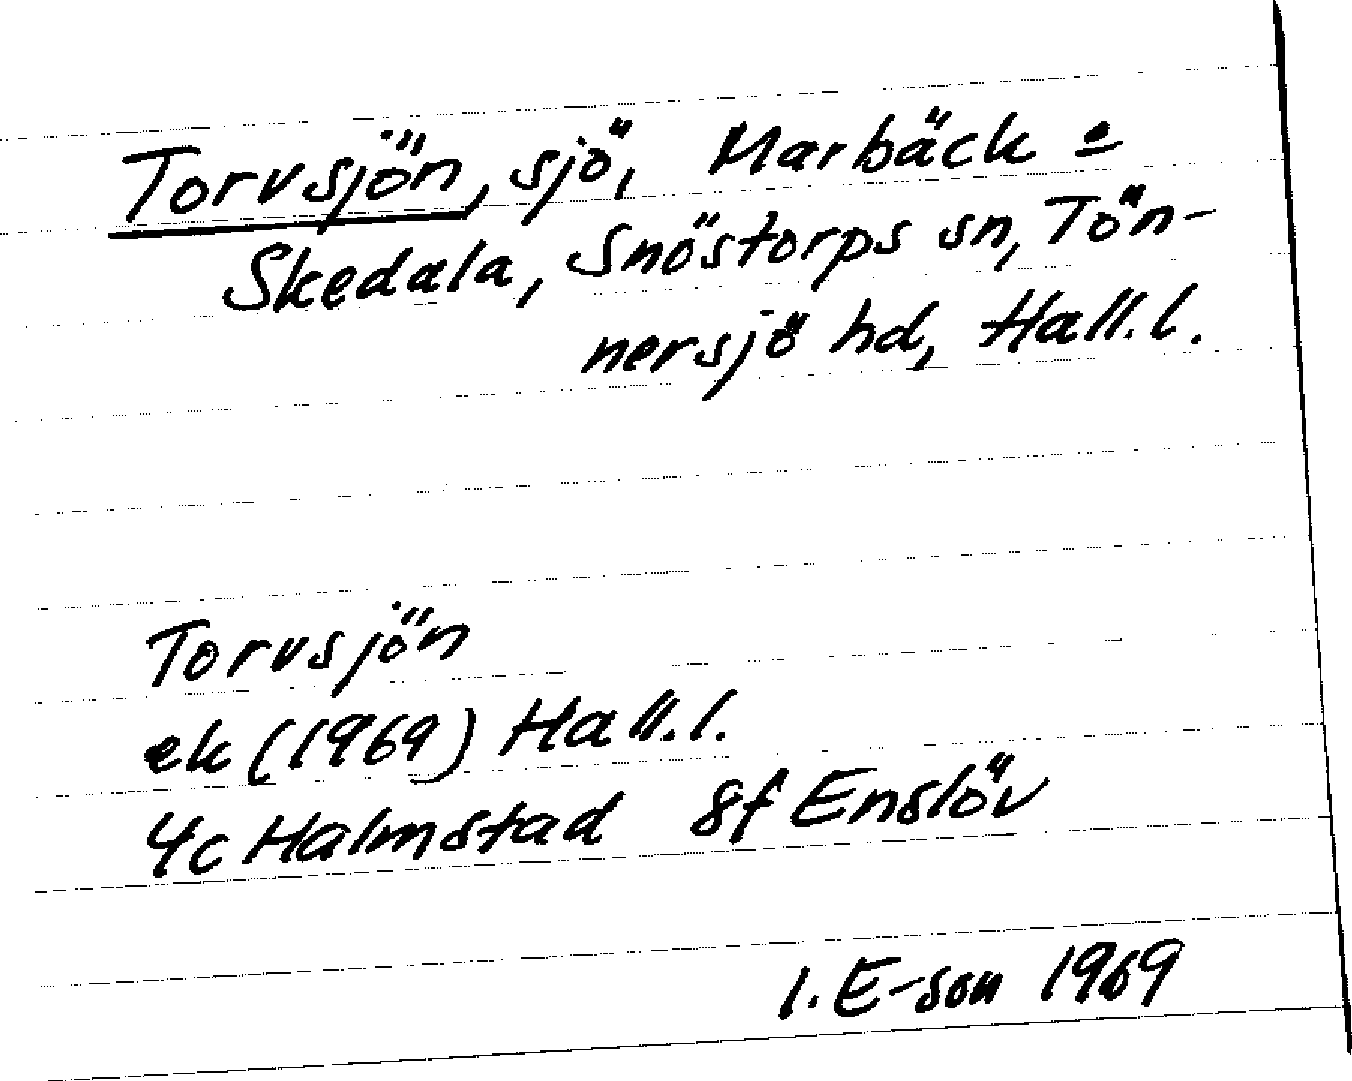 Torvsjön, sjö, Marbäck o
Skedala, Snöstorps sn, Tön-
nersjö hd, Hall.l.
Torvsjön
ek (1969) Hall.l.
4c Halmstad 8f Enslöv
I. E-son 1969